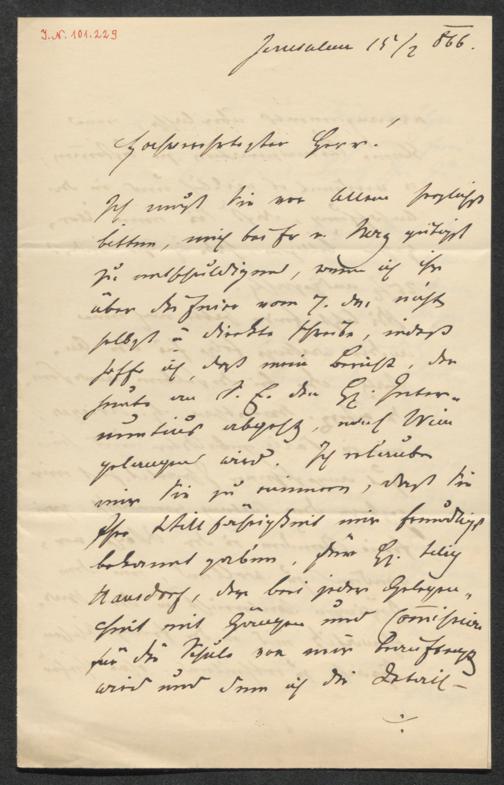 I.N. 101.229
Jerusalem 15/2 866.
Hochverehrtester Herr!
Ich muß Sie vor Allem herzlichst
bitten, mich bei Fr v. Herz gütigst
zu entschuldigen, wenn ich ihr
über die Feier vom 7. ds. nicht
selbst u direkte schreibe, indeß
hoffe ich, daß mein Bericht, der
heute an S. E. den H: Inter-
nuntius abgeht, nach Wien
gelangen wird. Ich erlaube
mir Sie zu erinnern, daß Sie
Ihre Willfährigkeit mir freundlichst
bekannt gaben, für H:
Hausdorf, der bei jeder Gelegen-
heit mit Gängen und Comissionen
für die Schule von mir beauftragt
wird und dem ich die Detail-